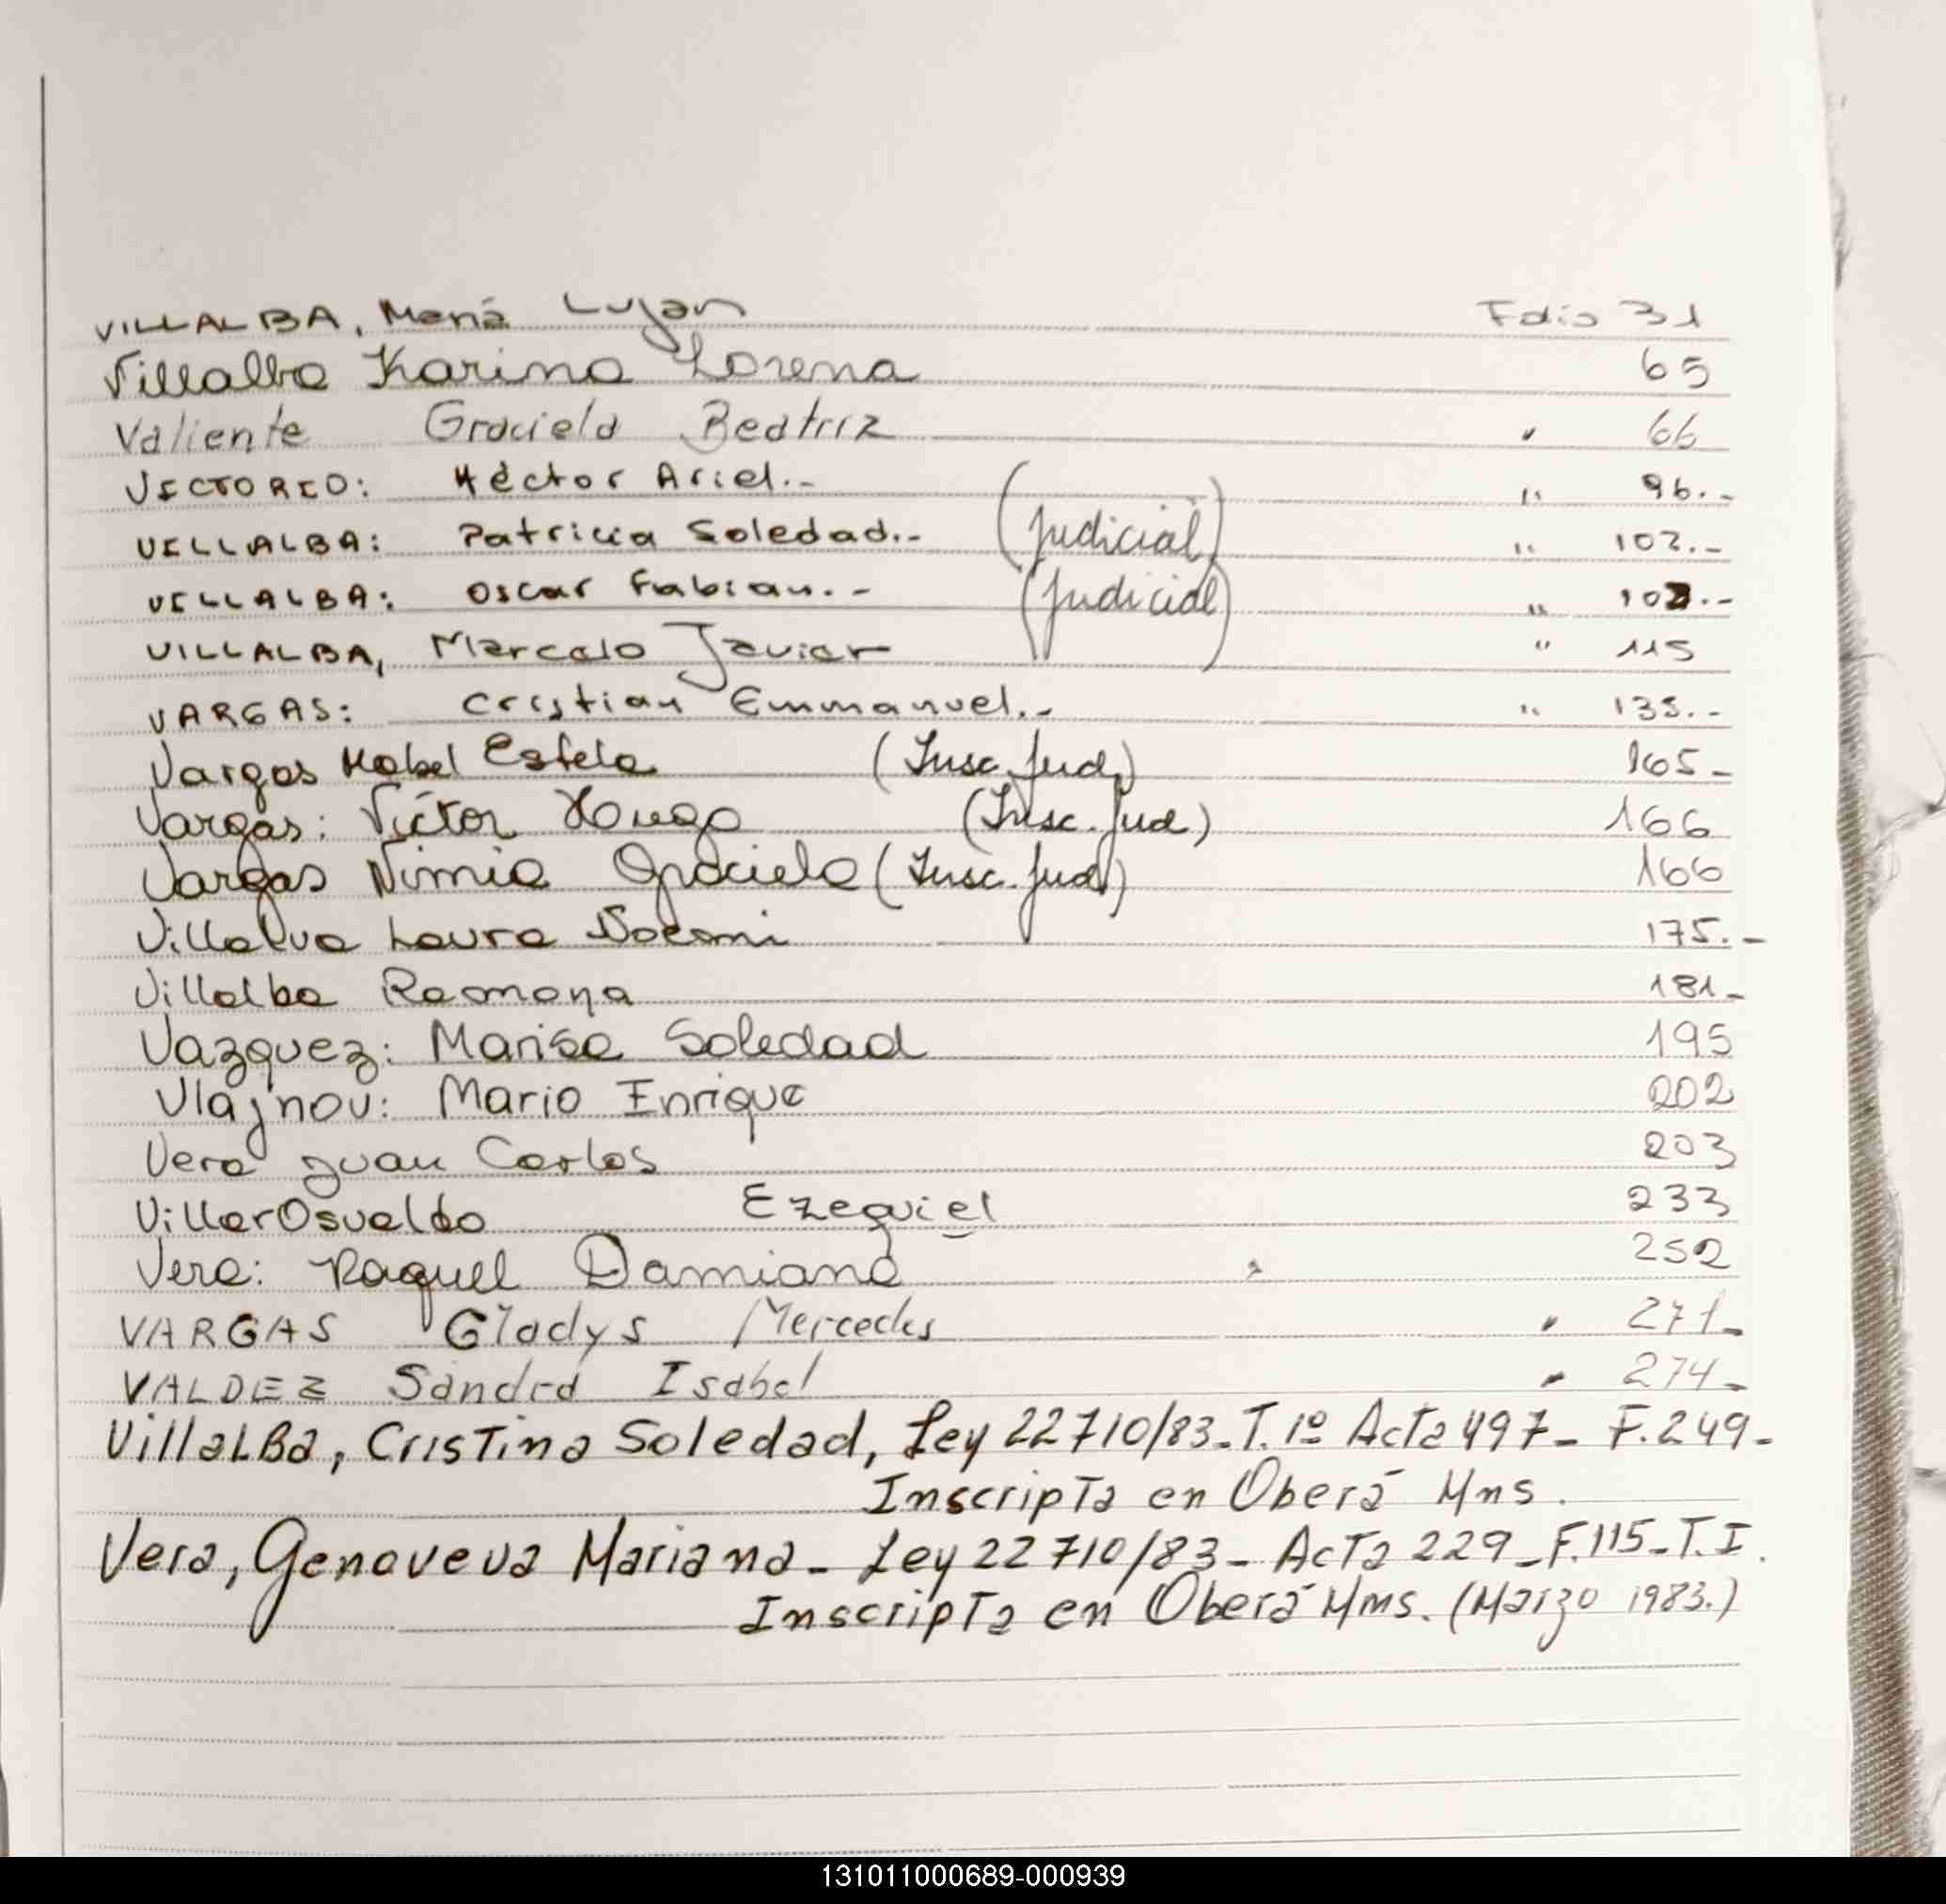 VILLALBA, María Lujan Folio 31
Villalba Karina Lorena 65
Valiente Graciela Beatriz " 66
VICTORIO: Héctor Ariel.- " 96.-
VILLALBA: Patricia Soledad.- (Judicial) " 102.-
VILLALBA: Oscar Fabian.- (Judicial) " 102.-
VILLALBA, Marcelo Javier " 115
VARGAS: Cristian Emmanuel.- " 135.-
Vargas Mabel Estela (Insc. Jud) 165-
Vargas: Víctor Hugo (Insc. Jud) 166
Vargas Nimia Graciela (Insc. Jud) 166
Villalva Laura Noemi 175.-
Villalba Ramona 181-
Vazquez: Marisa Soledad 195
Vlajnov: Mario Enrique 202
Vera Juan Carlos 203
Villar Osvaldo Ezequiel 233
Vera: Raquel Damiana " 252
VARGAS Gladys Mercedes " 271-
VALDEZ Sandra Isabel " 274-
VillaLBa, CrisTina Soledad, Ley 22710/83-T. 1º Acta 497- F.249-
InscripTa en Oberá Mns.
Vera, Genoveva Mariana- Ley 22710/83- AcTa 229-F.115-T.I.
InscripTa en Oberá Mns. (Marzo 1983.)
131011000689-000939